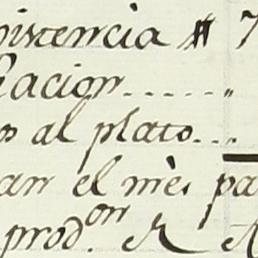 istencia # 7
acion......"
al plato...
an el mes pa
prod.on R